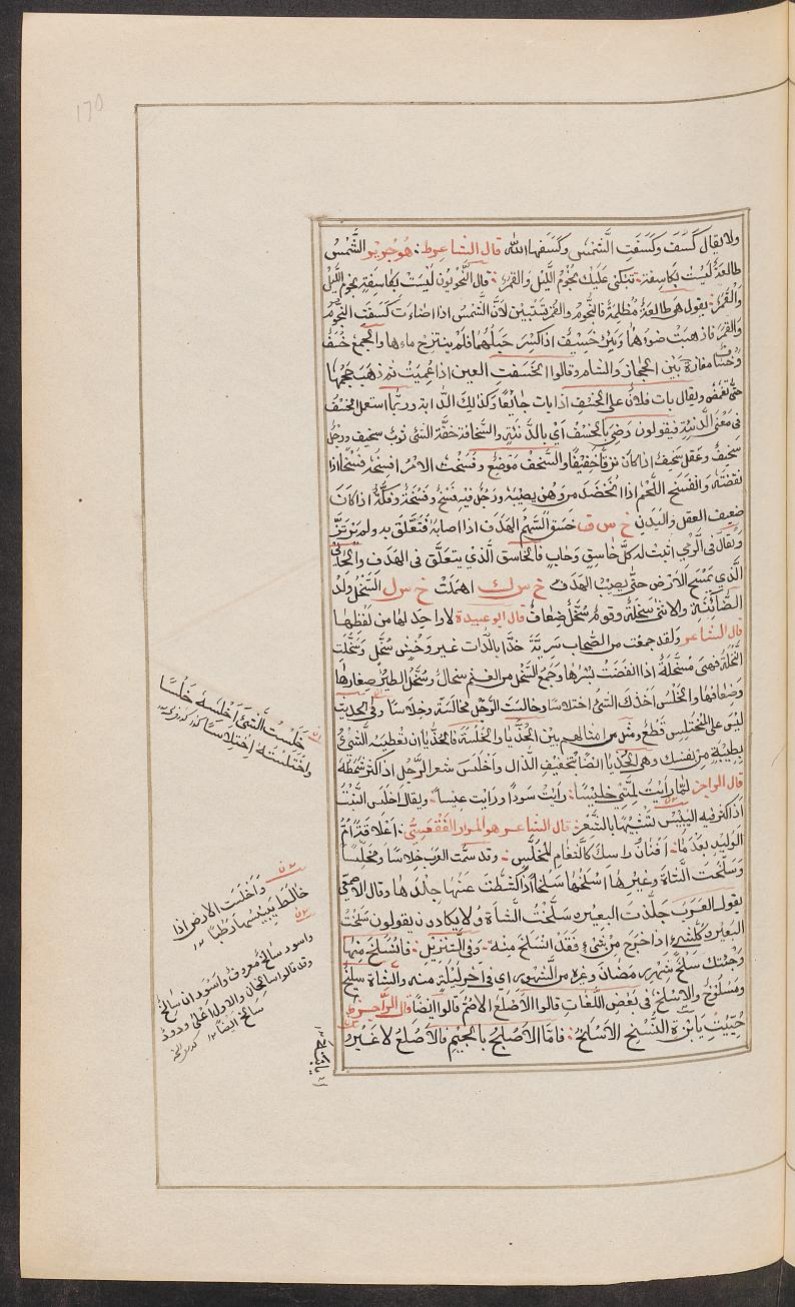 ولا يقال كَسَفَ وكَسَفَتِ الشَّمْسُ وكَسَفَهَا الله قال الشاعر هو جرير الشَّمْسُ
طالعةٌ لَيْسَتْ بكاسِفةٍ تَبْكى عَلَيك نُجُومُ اللَّيْلِ والقَمَرَا قال النَّحْوِيّون لَيْسَتْ بكاسِفةٍ نجومَ اللَّيْلِ
والقَمَرَ يقول هو طالعةٌ مُظلِمةٌ فالنُّجومُ والقمرُ تَتَبيَّن لأنَّ الشَّمْسَ اذا اضاءَتْ كَسَفَتِ النُّجومَ
والقمرَ فاذهبَتْ ضوءَهما وَبِئرٌ خَسِيفٌ اذا كُسِرَ جَبَلُهُما فلَمْ ينتزح ماءها والجمع خُسُفٌ
وخُسَاف مفازةٌ بَيْن الحجاز والشام وقالوا انخَسَفت العين اذا عَمِيَتْ
حتّى تغمض ويقال بات فلانٌ على الخَسْفِ اذا بات جائعًا وكذلك الدَّابة وربّما استعمل الخَسْف
فى مَعْنى الدَّنِيَّة فيقولون رَضِىَ بالخَسْفِ اَىْ بالدَّنِيَّةِ والسَّخافة خفَّة الشئ ثوبٌ سخيف ورجلٌ
سَخيفٌ وعَقلٌ سَخِيفٌ اذا كان نَزِقًا خَفِيفًا والسَّخف مَوضِعٌ وفَسَخْتُ الامرَ افسخه فَسْخًا اذا
نقضتَه وانفَسَخ اللَّحم اذا انخَضَد من وَهْنٍ يصيبه ورجُلٌ فيه فَسْخٌ وفَسْخَةٌ وفكَّةٌ اذا كانَ
ضعيفَ العقلِ والبَدَنِ خ س ق خَسَقَ السَّهمُ الهَدَفَ اذا اصابَه فَتَعَلَّقَ به ولم يَرْتَزَّ
ويقال فى الرَّمي اثبت له كلَّ خاسِقٍ وحابٍ فالخاسق الَّذي يتعَلَّق فى الهَدَف والحابى
الَّذى يَمْسَح الارضَ حتّى يصِيبَ الهَدَفَ خ س ك اهملتْ خ س ل السَّخْل ولدُ
الضَّائِنَةِ والانثى سَخلَةٌ وقومٌ سُخَّلٌ ضِعافٌ قال ابو عبيدة لا واحِدَ لها من لَفْظِهَا
قال الشاعر ولقد جمعت من الصِّحاب سَرِيّةً خدبًا لدات غير وخش سُخَّل وسَخَّلَت
النَّخْلةُ فهى مُسَخِّلَةٌ اذا انفَضَتْ بُسْرها وجَمْعُ السَّخْل من الغنم سِخالٌ وسُخَّلُ الطير صغارها
وضِعافها والخَلْس اَخْذك الشئَ اختلاسًا وخالستُ الرَّجُلَ مخالسَةً وخِلاسًا وفى الحديث
ليس على المُختلِس قَطْعٌ ومثل من امثالهم بين الحُذَيّا والخُلْسَة فالحُذَيّا ان تُعطِيَه الشَّىءَ
بطيبَةٍ من نفسك وهى الحُذَيا ايضًا بتخفيف الذَّال واَخْلَسَ شعر الرَّجُل اذا كثر شَمَطُه
قال الراجز لمّا رأيتُ لِمَّتى خليسًا رأيتْ سودًا ورأيت عِيسًا ويقال اَخْلَس النَّبْتُ
اذا كثر فيه اليَبِيس تَشْبِيهًا بالشَّعر قال الشاعر هو المرار الفَقْعَسِىّ اَعَلاقَةً اُمَّ
الوليدِ بَعْدَ مَا اَفْنَانُ راسِكَ كالثَّغامِ المُخْلِسِ وقد سمّت العرب خِلاسًا ومُخْلِسًا
وسَلَخْتُ الشَّاةَ وغيرها اَسْلَخُها سَلْخًا اذا كَشَطْتَ عَنْهَا جِلْدها وقال الاصمعى
يقول العَرَب جَلَّدْت البعيرَ وسَلَخْتُ الشَّاةَ ولا يكادون يقولون سَلَخْتُ
البعيرَ وكلّ شىءٍ اذا خرج من شىءٍ فَقَد انسَلَخَ منه وفى التَّنزيل فانْسَلَخَ مِنها
وجئتك سَلْخَ شهرِ رَمَضان وغيره من الشهور اى فى آخر ليلةٍ منه والشاة سَلِيخٌ
ومَسْلُوخٌ والاسْلَخُ فى بَعْض اللُّغاتِ قالوا الاَصْلَعُ قالوا ايضًا قال الراجز
حُيِّيتِ يا بْنَةَ الشَّيخ الاَسْلَخِ فامّا الاَصْلَجُ بالجيم فالاَصْلَعُ لا غير و
خَلَسْتُ الشَّىءَ اَخْلِسُهُ خَلْسًا
واختَلَسْتُهُ اختِلاسًا
وَاَخْلَسَتِ الارضُ اذا
خالَطَ يَبِيسُها رَطْبًا
واسود سالخٌ معروف واَسْوَدان سالخٌ
وقد قالوا سالخان والاوّل اَعْلى
سالخ ايضًا